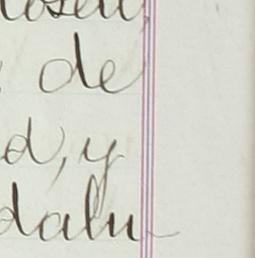 de
d, y
dalu-